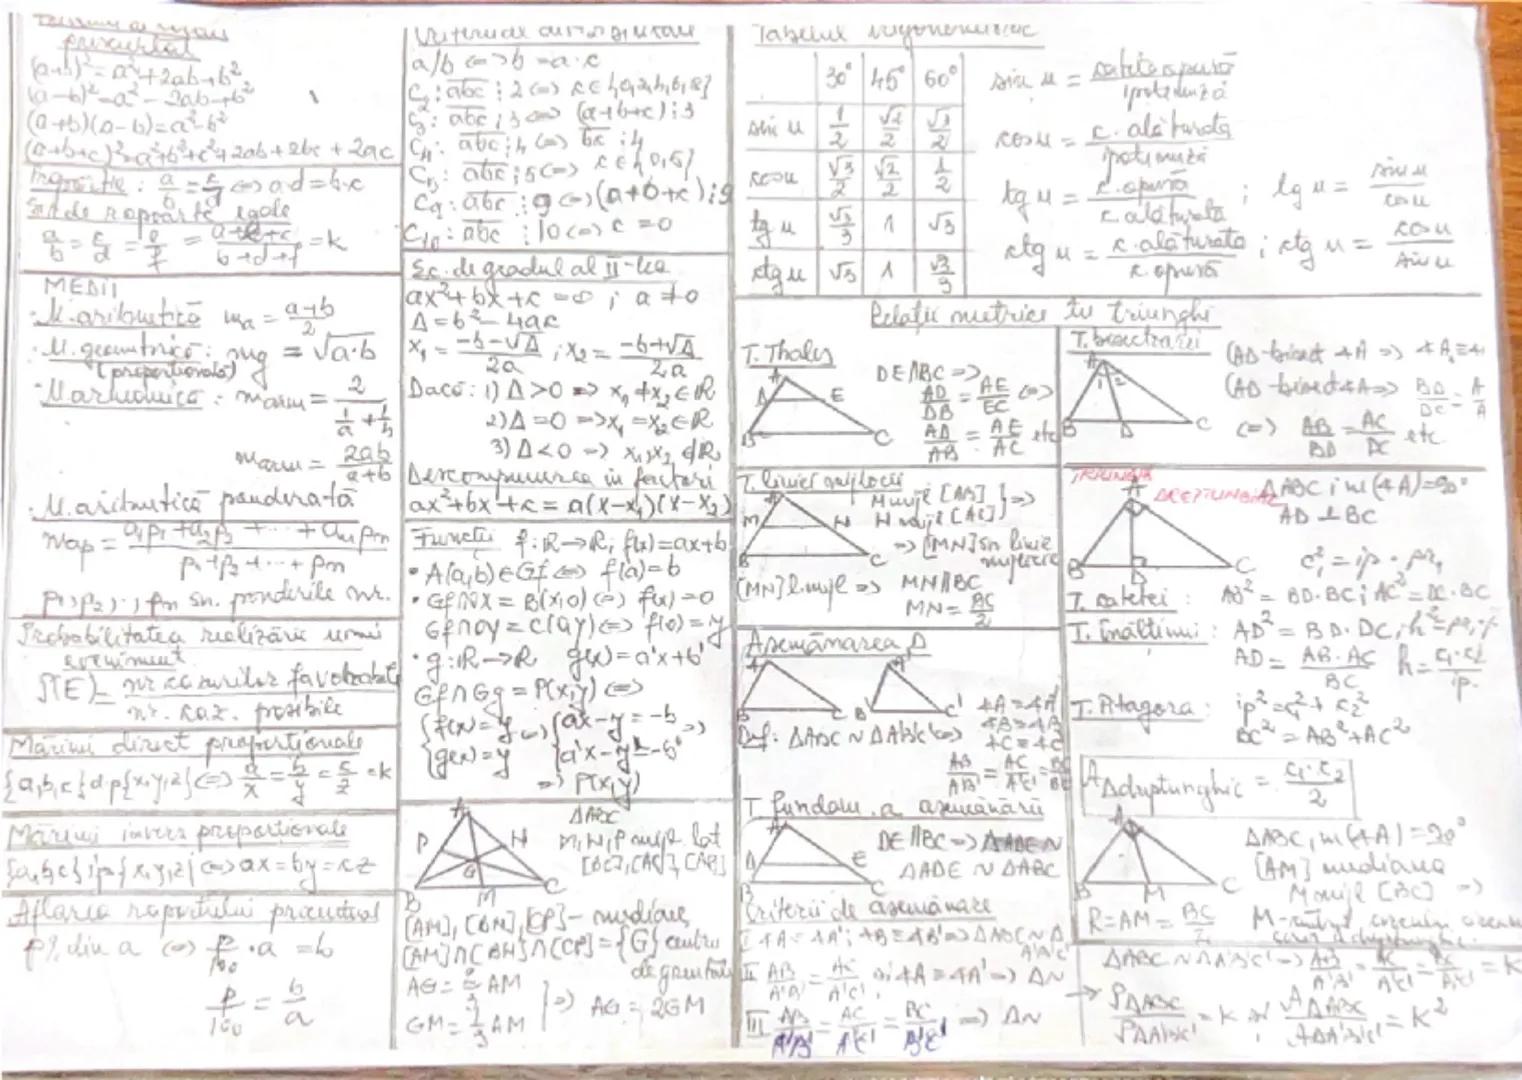 prescurtat
(a+b)²=a²+2ab+b²
(a-b)²=a²-2ab+b²
(a+b)(a-b)=a²-b²
(a+b+c)²=a²+b²+c²+2ab+2bc+2ac
a/b = c/d <=> a·d=b·c
Șir de rapoarte egale
a/b = c/d = e/f = (a+c+e)/(b+d+f) = k
MEDII
M. aritmetică ma = (a+b)/2
M. geometrică: mg = √a·b
(proporțională)
M. armonică: marm = 2/(1/a + 1/b)
marm = 2ab/(a+b)
M. aritmetică ponderată
map = (a1p1+a2p2+...+anpn)/(p1+p2+...+pn)
p1,p2,..,pn sn. ponderile nr.
Probabilitatea realizării unui
eveniment
P(E) = nr. cazurilor favorabile / nr. caz. posibile
Mărimi direct proporționale
{a,b,c} d.p {x,y,z} <=> a/x = b/y = c/z = k
Mărimi invers proporționale
{a,b,c} ip {x,y,z} <=> ax=by=cz
Aflarea raportului procentual
p% din a <=> p/100 ·a = b
p/100 = b/a
a/b <=> b=a·c
C2: abc ⋮ 2 <=> c∈{0,2,4,6,8}
C3: abc ⋮ 3 <=> (a+b+c) ⋮ 3
C4: abc ⋮ 4 <=> bc ⋮ 4
C5: abc ⋮ 5 <=> c∈{0,5}
C9: abc ⋮ 9 <=> (a+b+c) ⋮ 9
C10: abc ⋮ 10 <=> c=0
Ec. de gradul al II-lea
ax²+bx+c=0 ; a≠0
Δ=b²-4ac
x1 = (-b-√Δ)/2a ; x2 = (-b+√Δ)/2a
Dacă: 1) Δ>0 => x1≠x2∈R
2) Δ=0 => x1=x2∈R
3) Δ<0 => x1,x2∉R
Descompunerea în factori
ax²+bx+c = a(x-x1)(x-x2)
Funcții f:R→R; f(x)=ax+b
• A(a,b)∈Gf <=> f(a)=b
• Gf∩OX = B(x,0) <=> f(x)=0
Gf∩OY = C(0,y) <=> f(0)=y
• g:R→R g(x)=a'x+b'
Gf∩Gg = P(x,y) <=>
{f(x)=y <=> {ax-y=-b =>
{g(x)=y {a'x-y=-b'
=> P(x,y)
A
ΔABC
P N
M,N,P mijl. lat
[BC],[AC],[AB]
G
B M C
[AM],[BN],[CP]- mediane
[AM]∩[BN]∩[CP]={G} centru
de greutate
AG = 2/3 AM
GM = 1/3 AM
=> AG = 2GM
Tabelul trigonometric
30° 45° 60°
sin u 1/2 √2/2 √3/2
cos u √3/2 √2/2 1/2
tg u √3/3 1 √3
ctg u √3 1 √3/3
sin u = cateta opusă / ipotenuză
cos u = c. alăturată / ipotenuză
tg u = c. opusă / c. alăturată ; tg u = sin u / cos u
ctg u = c. alăturată / c. opusă ; ctg u = cos u / sin u
Relații metrice în triunghi
T. Thales
A
D E
B C
DE∥BC =>
AD/DB = AE/EC <=>
AD/AB = AE/AC etc
T. bisectoarei
A
1 2
B D C
(AD-bisect ∢A =>
(AD-bisect ∢A =>
<=> AB/BD = AC/DC etc.
T. liniei mijlocii
A
M N
B C
M mijl [AB]
N mijl [AC] } =>
=> [MN] sn linie
mijlocie
[MN] l. mijl => MN∥BC
MN = BC/2
TRIUNGHI
DREPTUNGHIC
A
B D C
ΔABC; m(∢A)=90°
AD⊥BC
T. catetei: AB² = BD·BC; AC² = DC·BC
T. înălțimii: AD² = BD·DC;
AD = AB·AC/BC h = c1·c2/ip.
T. Pitagora: ip² = c1²+c2²
BC² = AB²+AC²
A dreptunghic = c1·c2/2
Asemănarea Δ
A A'
B C B' C'
∢A=∢A'
∢B=∢B'
∢C=∢C'
Def: ΔABC~ΔA'B'C' <=>
T. fundam. a asemănării
A
D E
B C
DE∥BC => ΔADE~
ΔADE~ΔABC
Criterii de asemănare
I ∢A=∢A'; ∢B=∢B' => ΔABC~Δ
A'B'C'
II AB/A'B' = AC/A'C' și ∢A=∢A' => Δ~
III AB/A'B' = AC/A'C' = BC/B'C' => Δ~
A
B M C
ΔABC, m(∢A)=90°
[AM] mediana
M mijl [BC] =>
R=AM= BC/2
ΔABC~ΔA'B'C' => AB/A'B' = AC/A'C' = BC/B'C' = K
→ PΔABC/PΔA'B'C' = K și AΔABC/AΔA'B'C' = K²